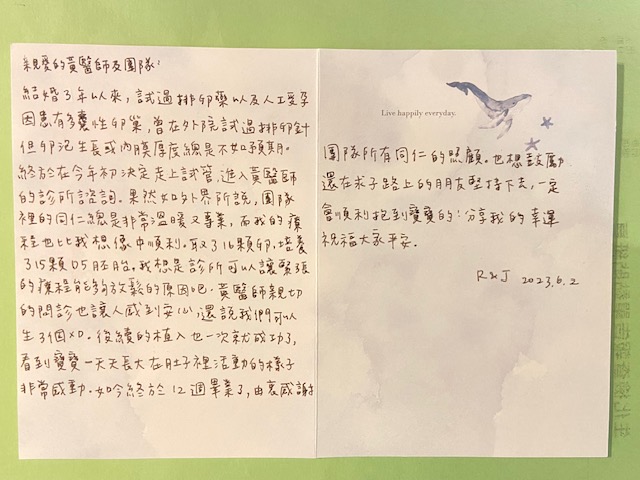 親愛的黃醫師及團隊:
結婚了年以來, 試過排卵藥以及人工受孕
因患有多囊性卵巢, 曾在外院試過排卵針
但卵泡生長或內膜厚度總是不如預期.
終於在今年初決定走上試管, 進入黃醫師
的診所諮詢. 果然如外界所說, 團隊
裡的同仁總是非常溫暖又專業, 而我的療
程也比我想像中順利. 取了16顆卵, 培養
了15顆D5胚胎, 我想是診所可以讓緊張
的療程能夠放鬆的原因吧. 黃醫師親切
的問診也讓人感到安心, 還說我們可以
生3個XD. 後續的植入也一次就成功了,
看到寶寶一天天長大在肚子裡活動的樣子
非常感動. 如今終於12週畢業了, 由衷感謝
Live happily everyday.
團隊所有同仁的照顧. 也想鼓勵
還在求子路上的朋友堅持下去, 一定
會順利抱到寶寶的! 分享我的幸運
祝福大家平安.
R&J 2023.6.2